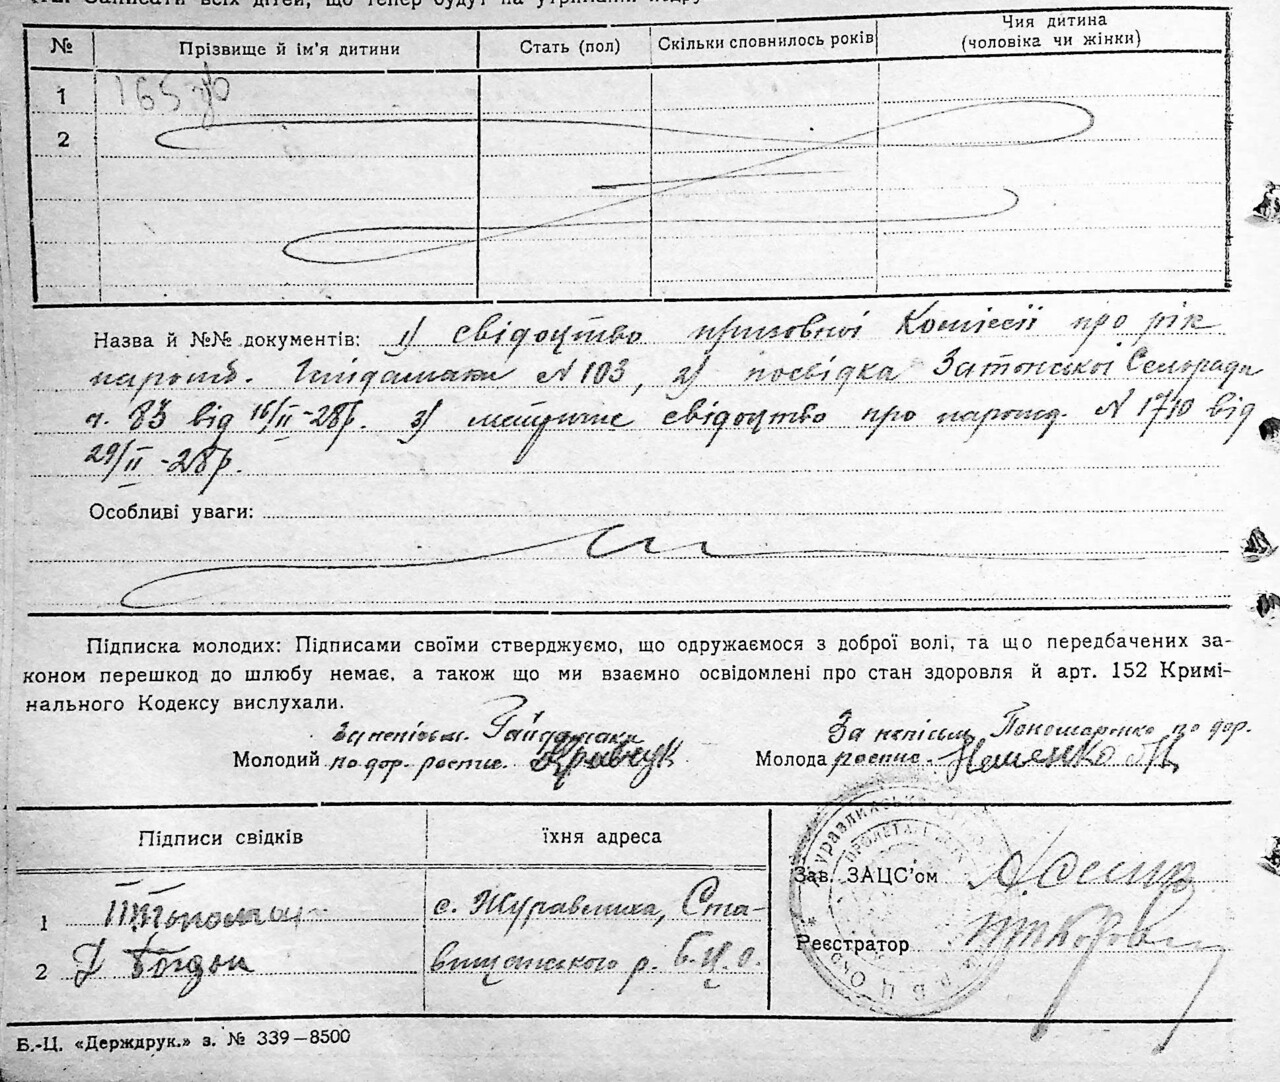 Записати всіх дітей, що тепер будут на утриманні подру
№ Прізвище й ім'я дитини Стать (пол) Скільки сповнилось років Чия дитина
(чоловіка чи жінки)
1 165
2
Назва й №№ документів: 1) свідоцтво призовної Комісії про рік
народж. Гайдамаки N 103, 2) посвідка Затонської Сельради
ч. 83 від 16/II-28р. 3) метричне свідоцтво про народж. N 1710 від
29/II-28р.
Особливі уваги:
Підписка молодих: Підписами своїми стверджуємо, що одружаємося з доброї волі, та що передбачених за-
коном перешкод до шлюбу немає, а також що ми взаємно освідомлені про стан здоровля й арт. 152 Кримі-
нального Кодексу вислухали.
За неписьм. Гайдамаки За неписьм Пономаренко по дор.
Молодий по дор. розпис. Кравчук Молода розпис.
Підписи свідків їхня адреса
Зав. ЗАЦС'ом
1 с. Журавлиха, Ста-
Реєстратор
2 Д Богдан вищанського р. Б.Ц.О.
Б.-Ц. «Держдрук.» з. № 339—8500